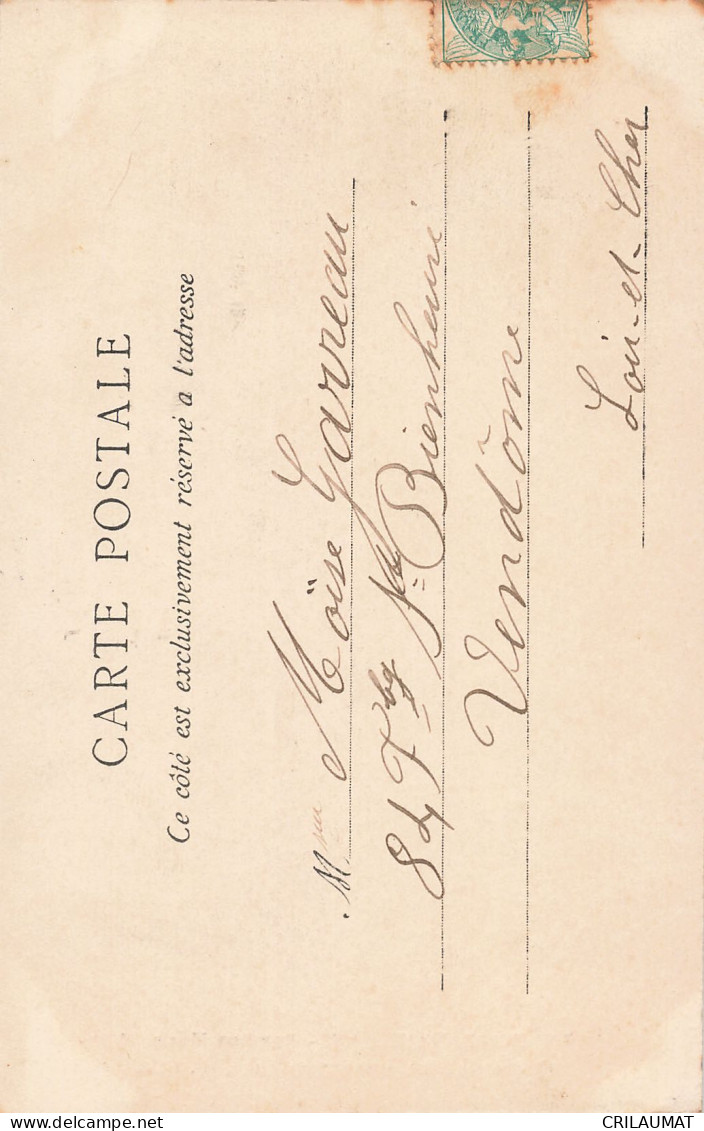 CARTE POSTALE
Ce côté est exclusivement réservé a l'adresse
M.sieur Moïse Garreau
84 Fbg St Bienheuré
Vendôme
Loir-et-Cher
CRILAUMAT